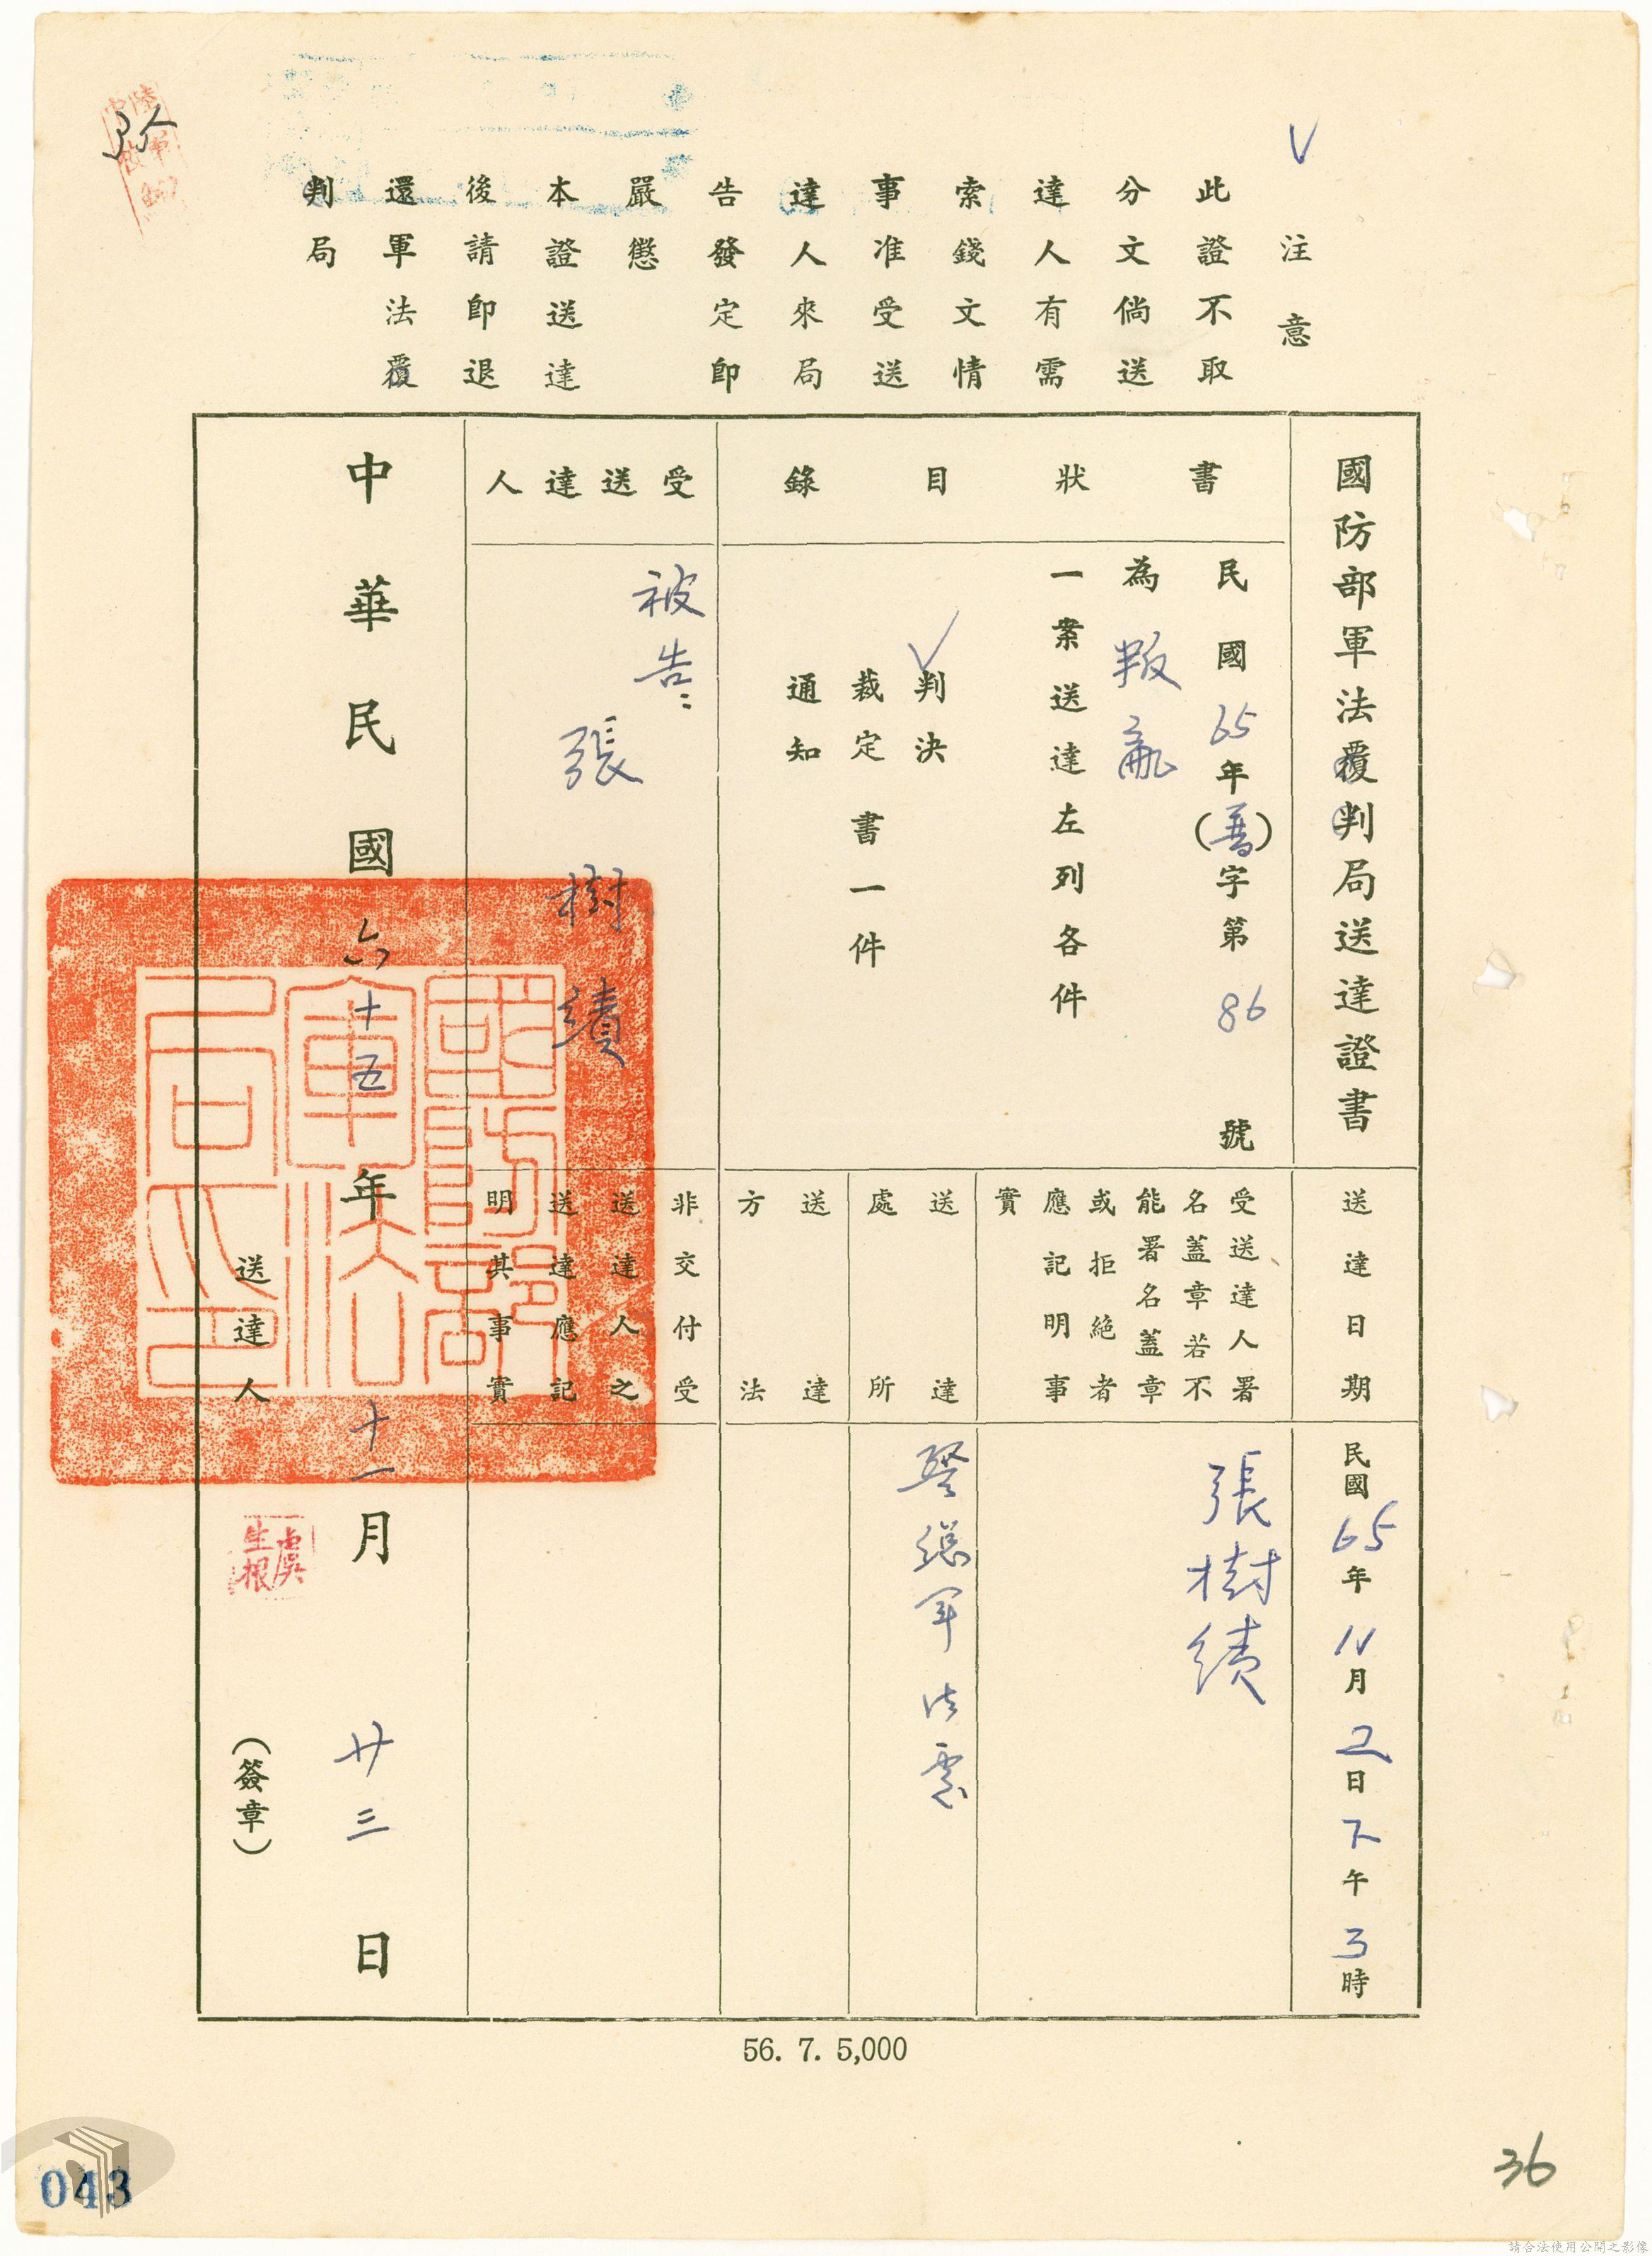 注意
此證不取
分文倘送
達人有需
索錢文情
事准受送
達人來局
告發定即
嚴懲
本證送達
後請即退
還軍法覆
判局
國防部軍法覆判局送達證書
書狀目錄
民國65年(普)字第86號
為叛亂
一案送達左列各件
✓判決
裁定書一件
通知
受送達人
被告:
張樹績
送達日期
民國65年11月 日下午3時
受送達人署
名蓋章若不
能署名蓋章
或拒絕者
應記明事
實
張樹績
送達
處所
警總軍法處
送達
方法
非交付受
送達人之
送達應記
明其事實
中華民國六十五年十一月廿三日
送達人
虞生根
(簽章)
國防部軍法局之印
56. 7. 5,000
043
36
請合法使用公開之影像